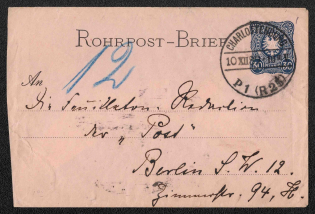 ROHRPOST-BRIEF
CHARLOTTENBURG
10 XII
P1 (R25)
12
An
die Feuilleton-Redaction
der "Post"
Berlin S.W. 12.
Zimmerstr. 94, H.